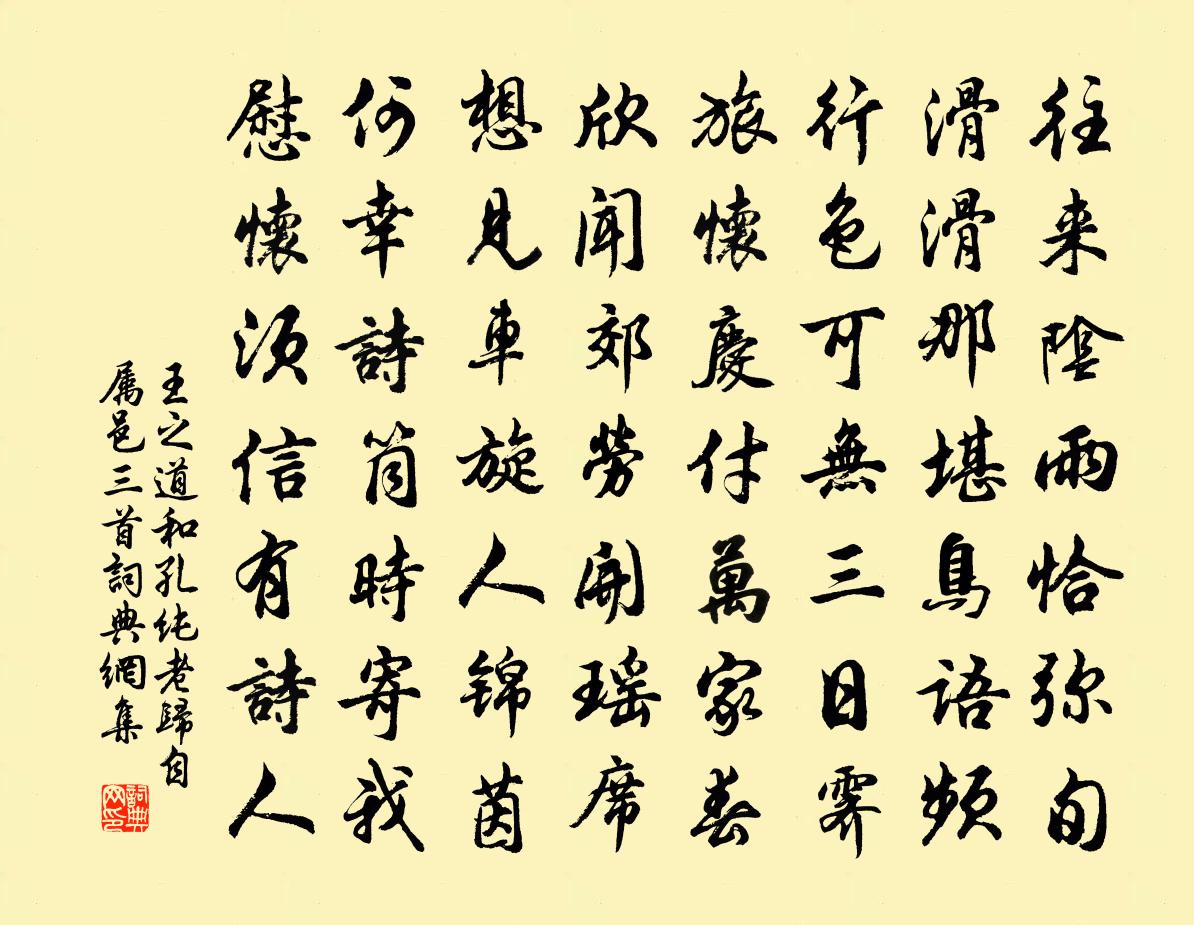 往来陰雨恰弥旬
滑滑那堪鳥語頻
行色可無三日霽
旅懷慶付萬家春
欣聞郊勞開瑶席
想見車旋人锦茵
何幸詩筒時寄我
慰懷須信有詩人
王之道和孔纯老歸自
属邑三首詞典網集
詞典网印